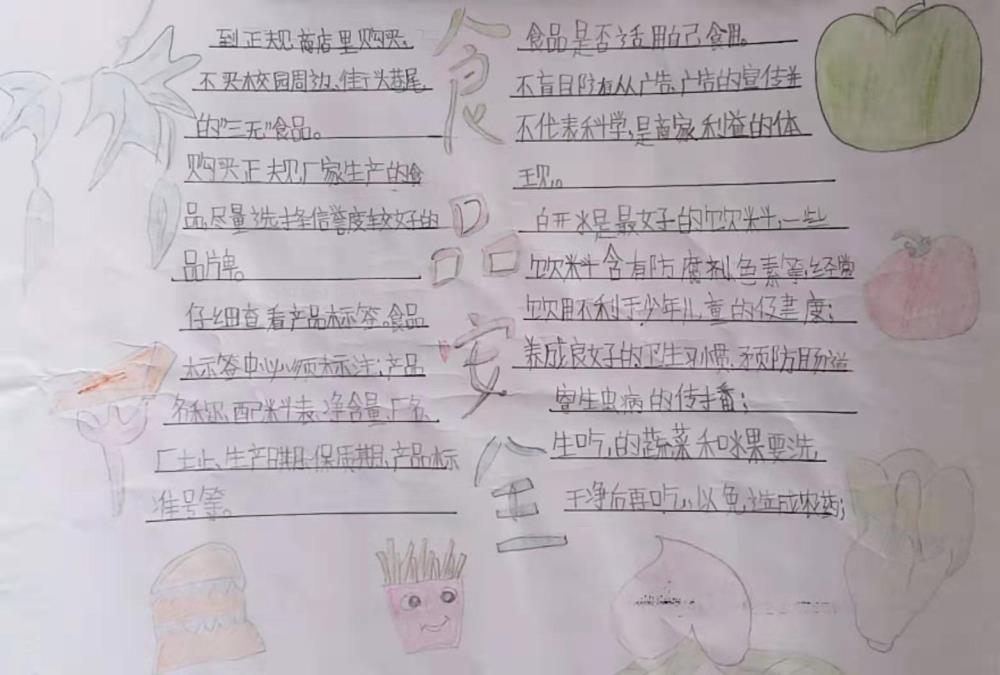 到正规商店里购买,
不买校园周边、街头巷尾
的"三无"食品。
购买正规厂家生产的食
品,尽量选择信誉度较好的
品牌。
仔细查看产品标签。食品
标签中必须标注:产品
名称、配料表、净含量、厂名、
厂址、生产日期、保质期、产品标
准号等。
食品安全
食品是否适用自己食用。
不盲目随从广告,广告的宣传并
不代表科学,是商家利益的体
现。
白开水是最好的饮料,一些
饮料含有防腐剂、色素等,经常
饮用不利于少年儿童的健康;
养成良好的卫生习惯,预防肠道
寄生虫病的传播;
生吃的蔬菜和水果要洗
干净后再吃,以免造成农药;